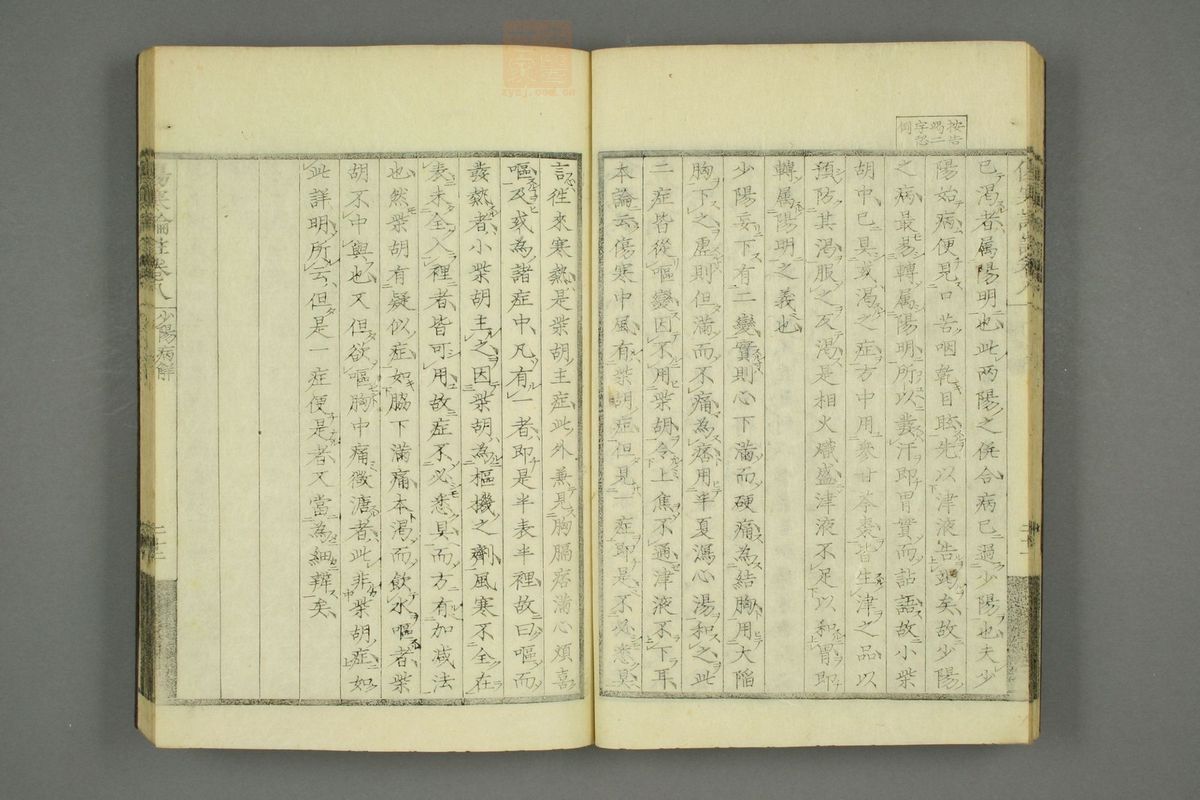 按告
竭二
字恐
倒
已渴者屬陽明也此兩陽之併合病已過少陽也夫少
陽始病便見口苦咽乾目眩先以津液告竭矣故少陽
之病最易轉属陽明所以發汗即胃實而詀語故小柴
胡中已具或渴之症方中用參甘芩棗皆生津之品以
預防其渴服之反渴是相火熾盛津液不足以和胃即
轉属陽明之義也
少陽妄下有二變實則心下滿而硬痛為結胸用大陷
胸下之虛則但滿而不痛為痞用半夏瀉心湯和之此
二症皆從嘔變因不用柴胡令上焦不通津液不下耳
本論云傷寒中風有柴胡症但見一症即是不必悉具
言徃來寒熱是柴胡主症此外兼見胸脇痞滿心煩喜
嘔及或為諸症中凡有一者即是半表半裡故曰嘔而
發熱者小柴胡主之因柴胡為樞機之劑風寒不全在
表未全入裡者皆可用故症不必悉具而方有加減法
也然柴胡有疑似症如脇下滿痛本渴而飲水嘔者柴
胡不中與也又但欲嘔胸中痛微溏者此非柴胡症如
此詳明所云但是一症便是者又當為細辨矣
傷寒論註卷八
少陽病解
zycj.com.cn